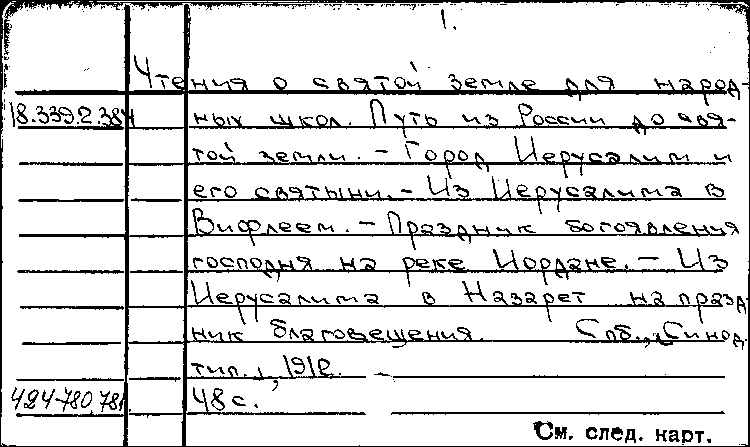 1.
Чтения о святой земле для народ-
18.339.2.384 ных школ. Путь из России до свя-
той земли. – Город Иерусалим и
его святыни. – Из Иерусалима в
Вифлеем. – Праздник богоявления
господня на реке Иордане. – Из
Иерусалима в Назарет на празд-
ник благовещения. Спб., Синод.
тип.,
48 с.
См. след. карт.